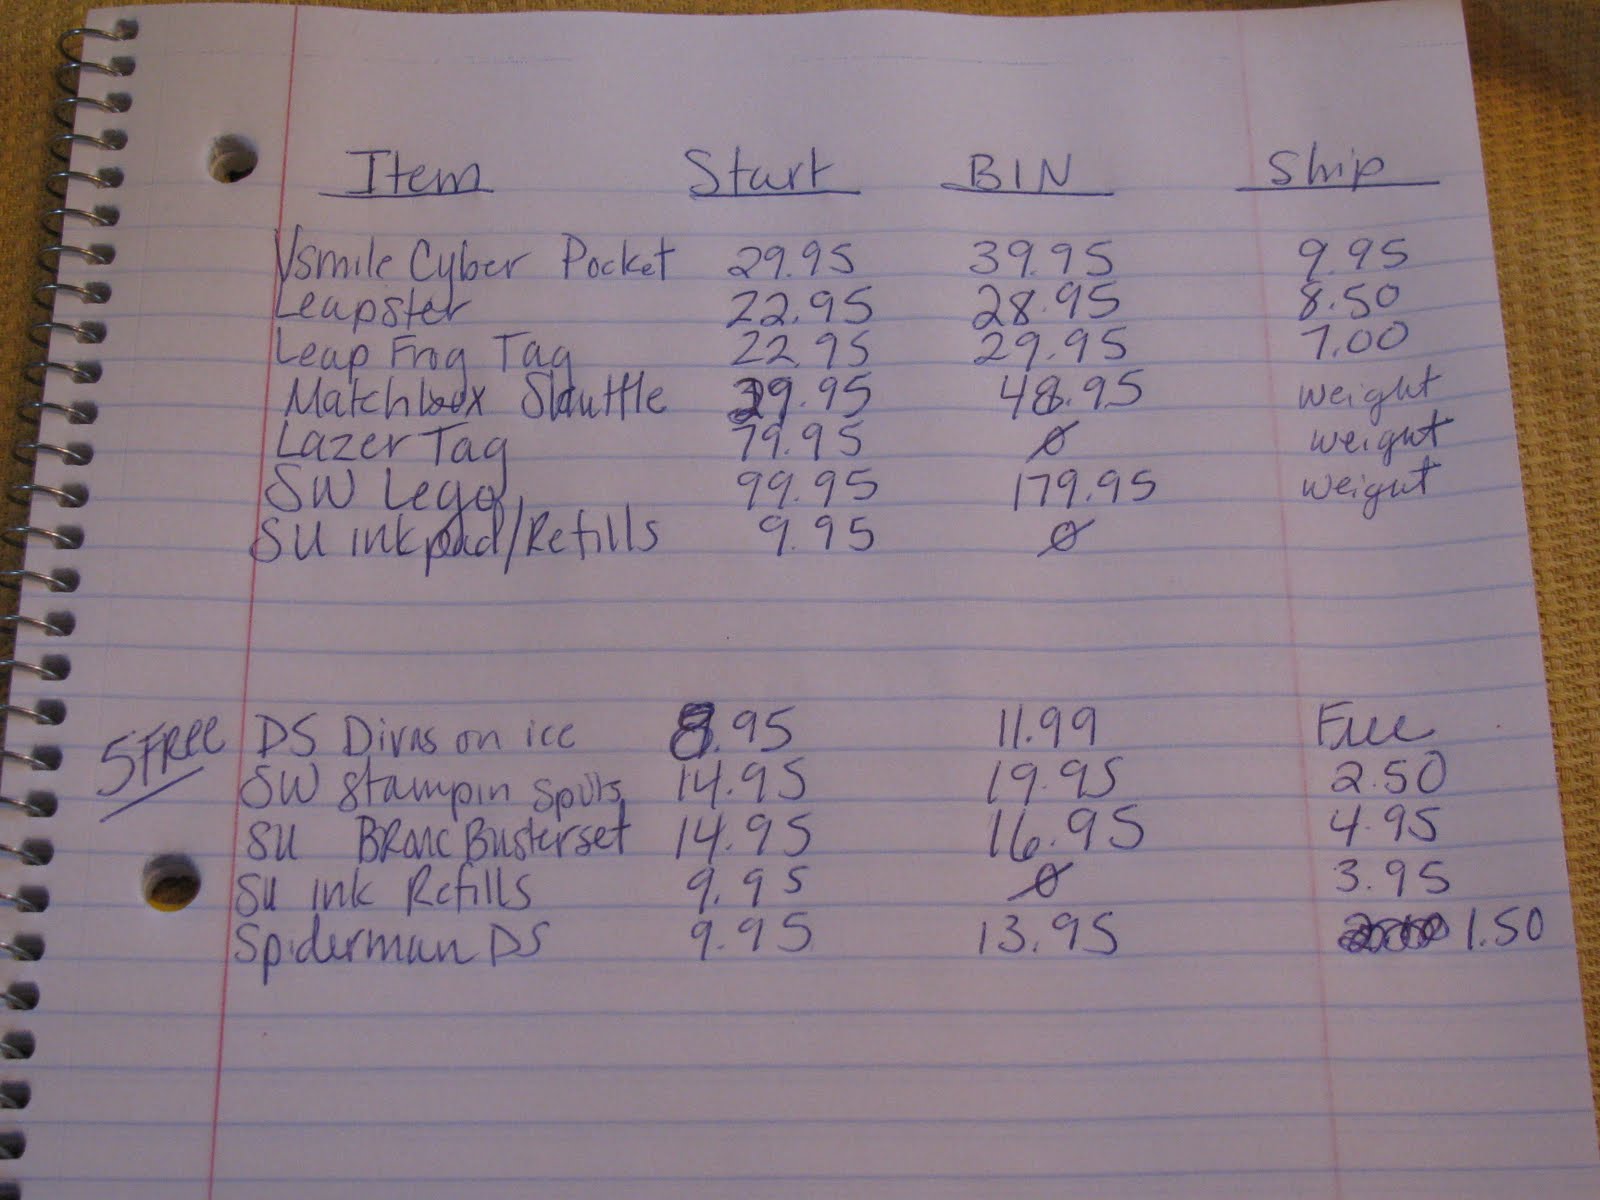 Item Start BIN Ship
Vsmile Cyber Pocket 29.95 39.95 9.95
Leapster 22.95 28.95 8.50
Leap Frog Tag 22.95 29.95 7.00
Matchbox Shuttle 39.95 48.95 weight
Lazer Tag 79.95 Ø weight
SW Lego 99.95 179.95 weight
SU ink pad/Refills 9.95 Ø
5 FREE DS Divas on ice 8.95 11.99 Free
SW Stampin Spots 14.95 19.95 2.50
SU Bronc Buster set 14.95 16.95 4.95
SU ink Refills 9.95 Ø 3.95
Spiderman DS 9.95 13.95 1.50